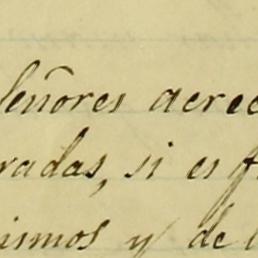 señores acree
radas, si es f
ismos y de l